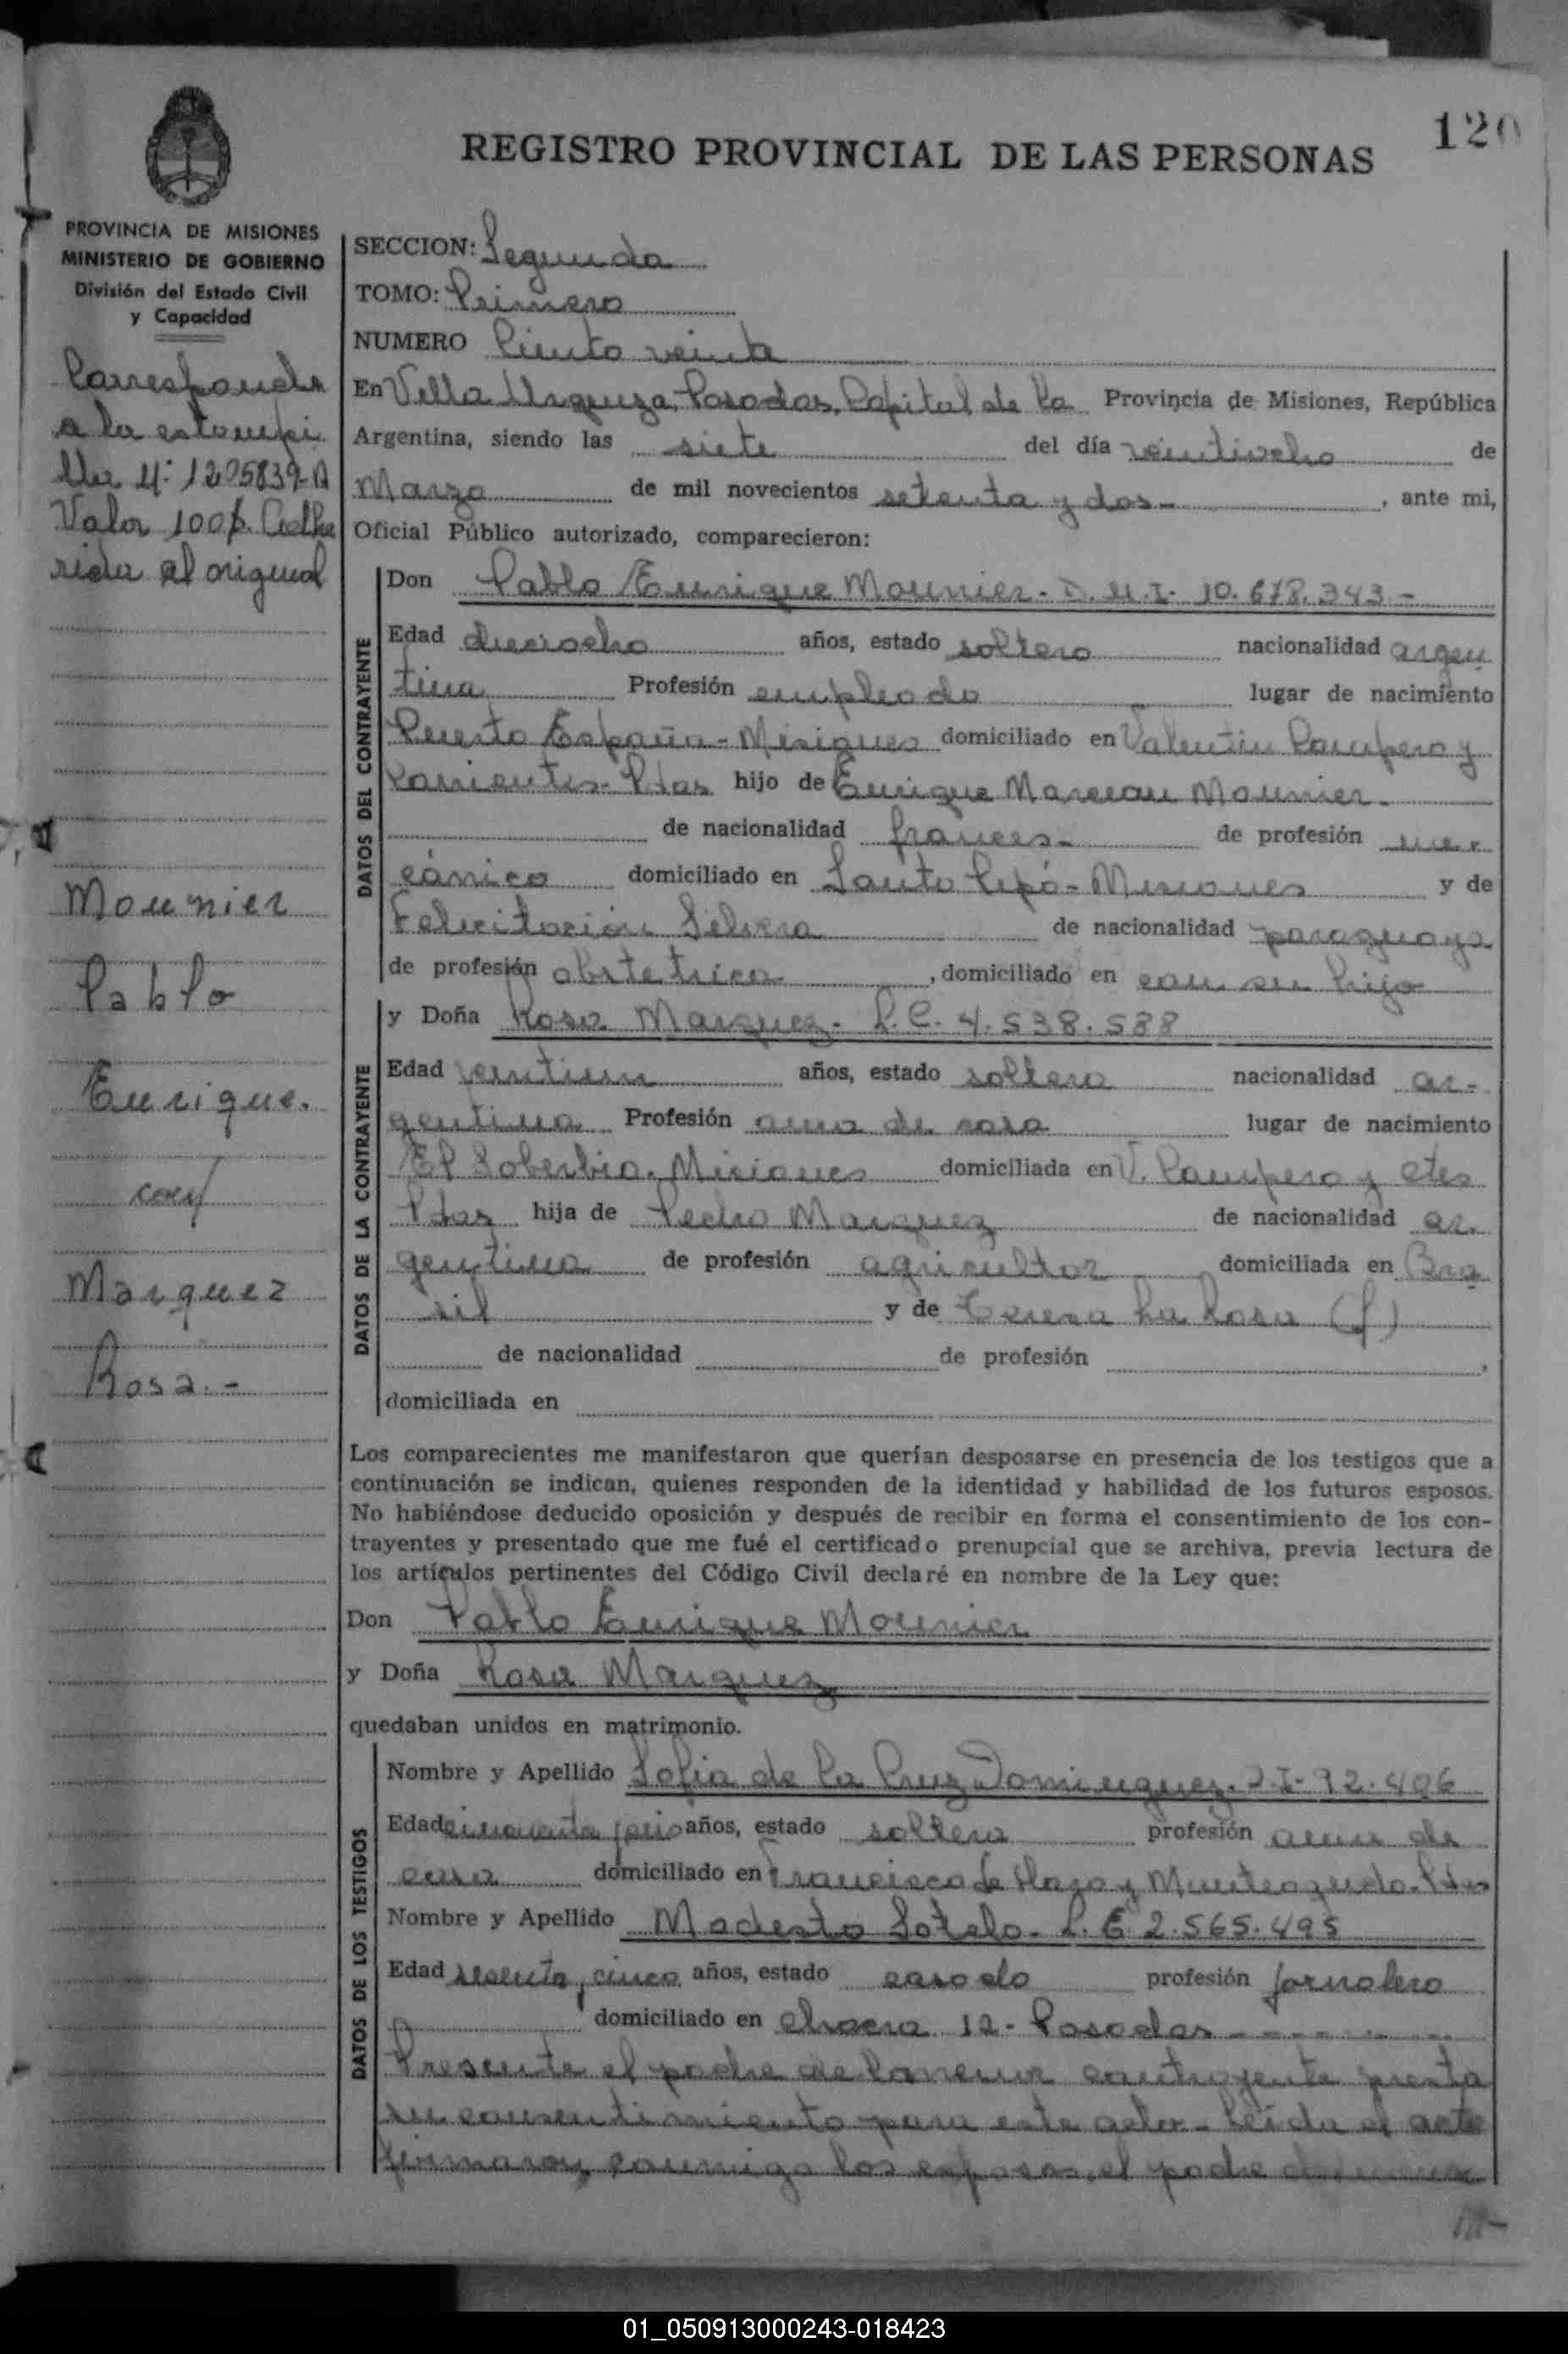 120
REGISTRO PROVINCIAL DE LAS PERSONAS
PROVINCIA DE MISIONES
MINISTERIO DE GOBIERNO
División del Estado Civil
y Capacidad
Corresponde
a la estampi
lla N: 1205839-A
Valor 100$. Adhe
rida al original
Mounier
Pablo
Enrique.
con
Marquez
Rosa.-
SECCION: Segunda
TOMO: Primero
NUMERO Ciento veinte
En Villa Urquiza, Posadas, Capital de la Provincia de Misiones, República
Argentina, siendo las siete del día veintiocho de
Marzo de mil novecientos setenta y dos-, ante mi,
Oficial Público autorizado, comparecieron:
DATOS DEL CONTRAYENTE
Don Pablo Enrique Mounier. D.N.I. 10.678.343-
Edad dieciocho años, estado soltero nacionalidad argen
tina Profesión empleado lugar de nacimiento
Puerto España-Misiones domiciliado en Valentin Pampero y
Corrientes-Pdas hijo de Enrique Marceau Mounier.
de nacionalidad frances- de profesión me
cánico domiciliado en Santo Pipó-Misiones y de
Felicitación Silvera de nacionalidad paraguaya
de profesión obstetrica, domiciliado en con su hijo
DATOS DE LA CONTRAYENTE
y Doña Rosa Marquez- L.C. 4.538.588
Edad veintiun años, estado soltera nacionalidad ar-
gentina Profesión ama de casa lugar de nacimiento
El Soberbio. Misiones domiciliada en V. Pampero y Ctes
Pdas hija de Pedro Marquez de nacionalidad ar.
gentina de profesión agricultor domiciliada en Bra
sil y de Teresa La Rosa (f)
de nacionalidad de profesión ,
domiciliada en
Los comparecientes me manifestaron que querían desposarse en presencia de los testigos que a
continuación se indican, quienes responden de la identidad y habilidad de los futuros esposos.
No habiéndose deducido oposición y después de recibir en forma el consentimiento de los con-
trayentes y presentado que me fué el certificado prenupcial que se archiva, previa lectura de
los artículos pertinentes del Código Civil declaré en nombre de la Ley que:
Don Pablo Enrique Mounier
y Doña Rosa Marquez
quedaban unidos en matrimonio.
DATOS DE LOS TESTIGOS
Nombre y Apellido Sofia de la Cruz Dominguez. 92.406
Edad cincuenta años, estado soltera profesión ama de
casa domiciliado en Francisco de Haro y Monteagudo-Pdas
Nombre y Apellido Modesto Sotelo. L.E. 2.565.495
Edad sesenta y cinco años, estado casado profesión jornalero
domiciliado en chacra 12- Posadas-
Presente el padre del menor contrayente presta
su consentimiento para este acto- Leída el acta
firmaron conmigo los esposos, el padre
01_050913000243-018423